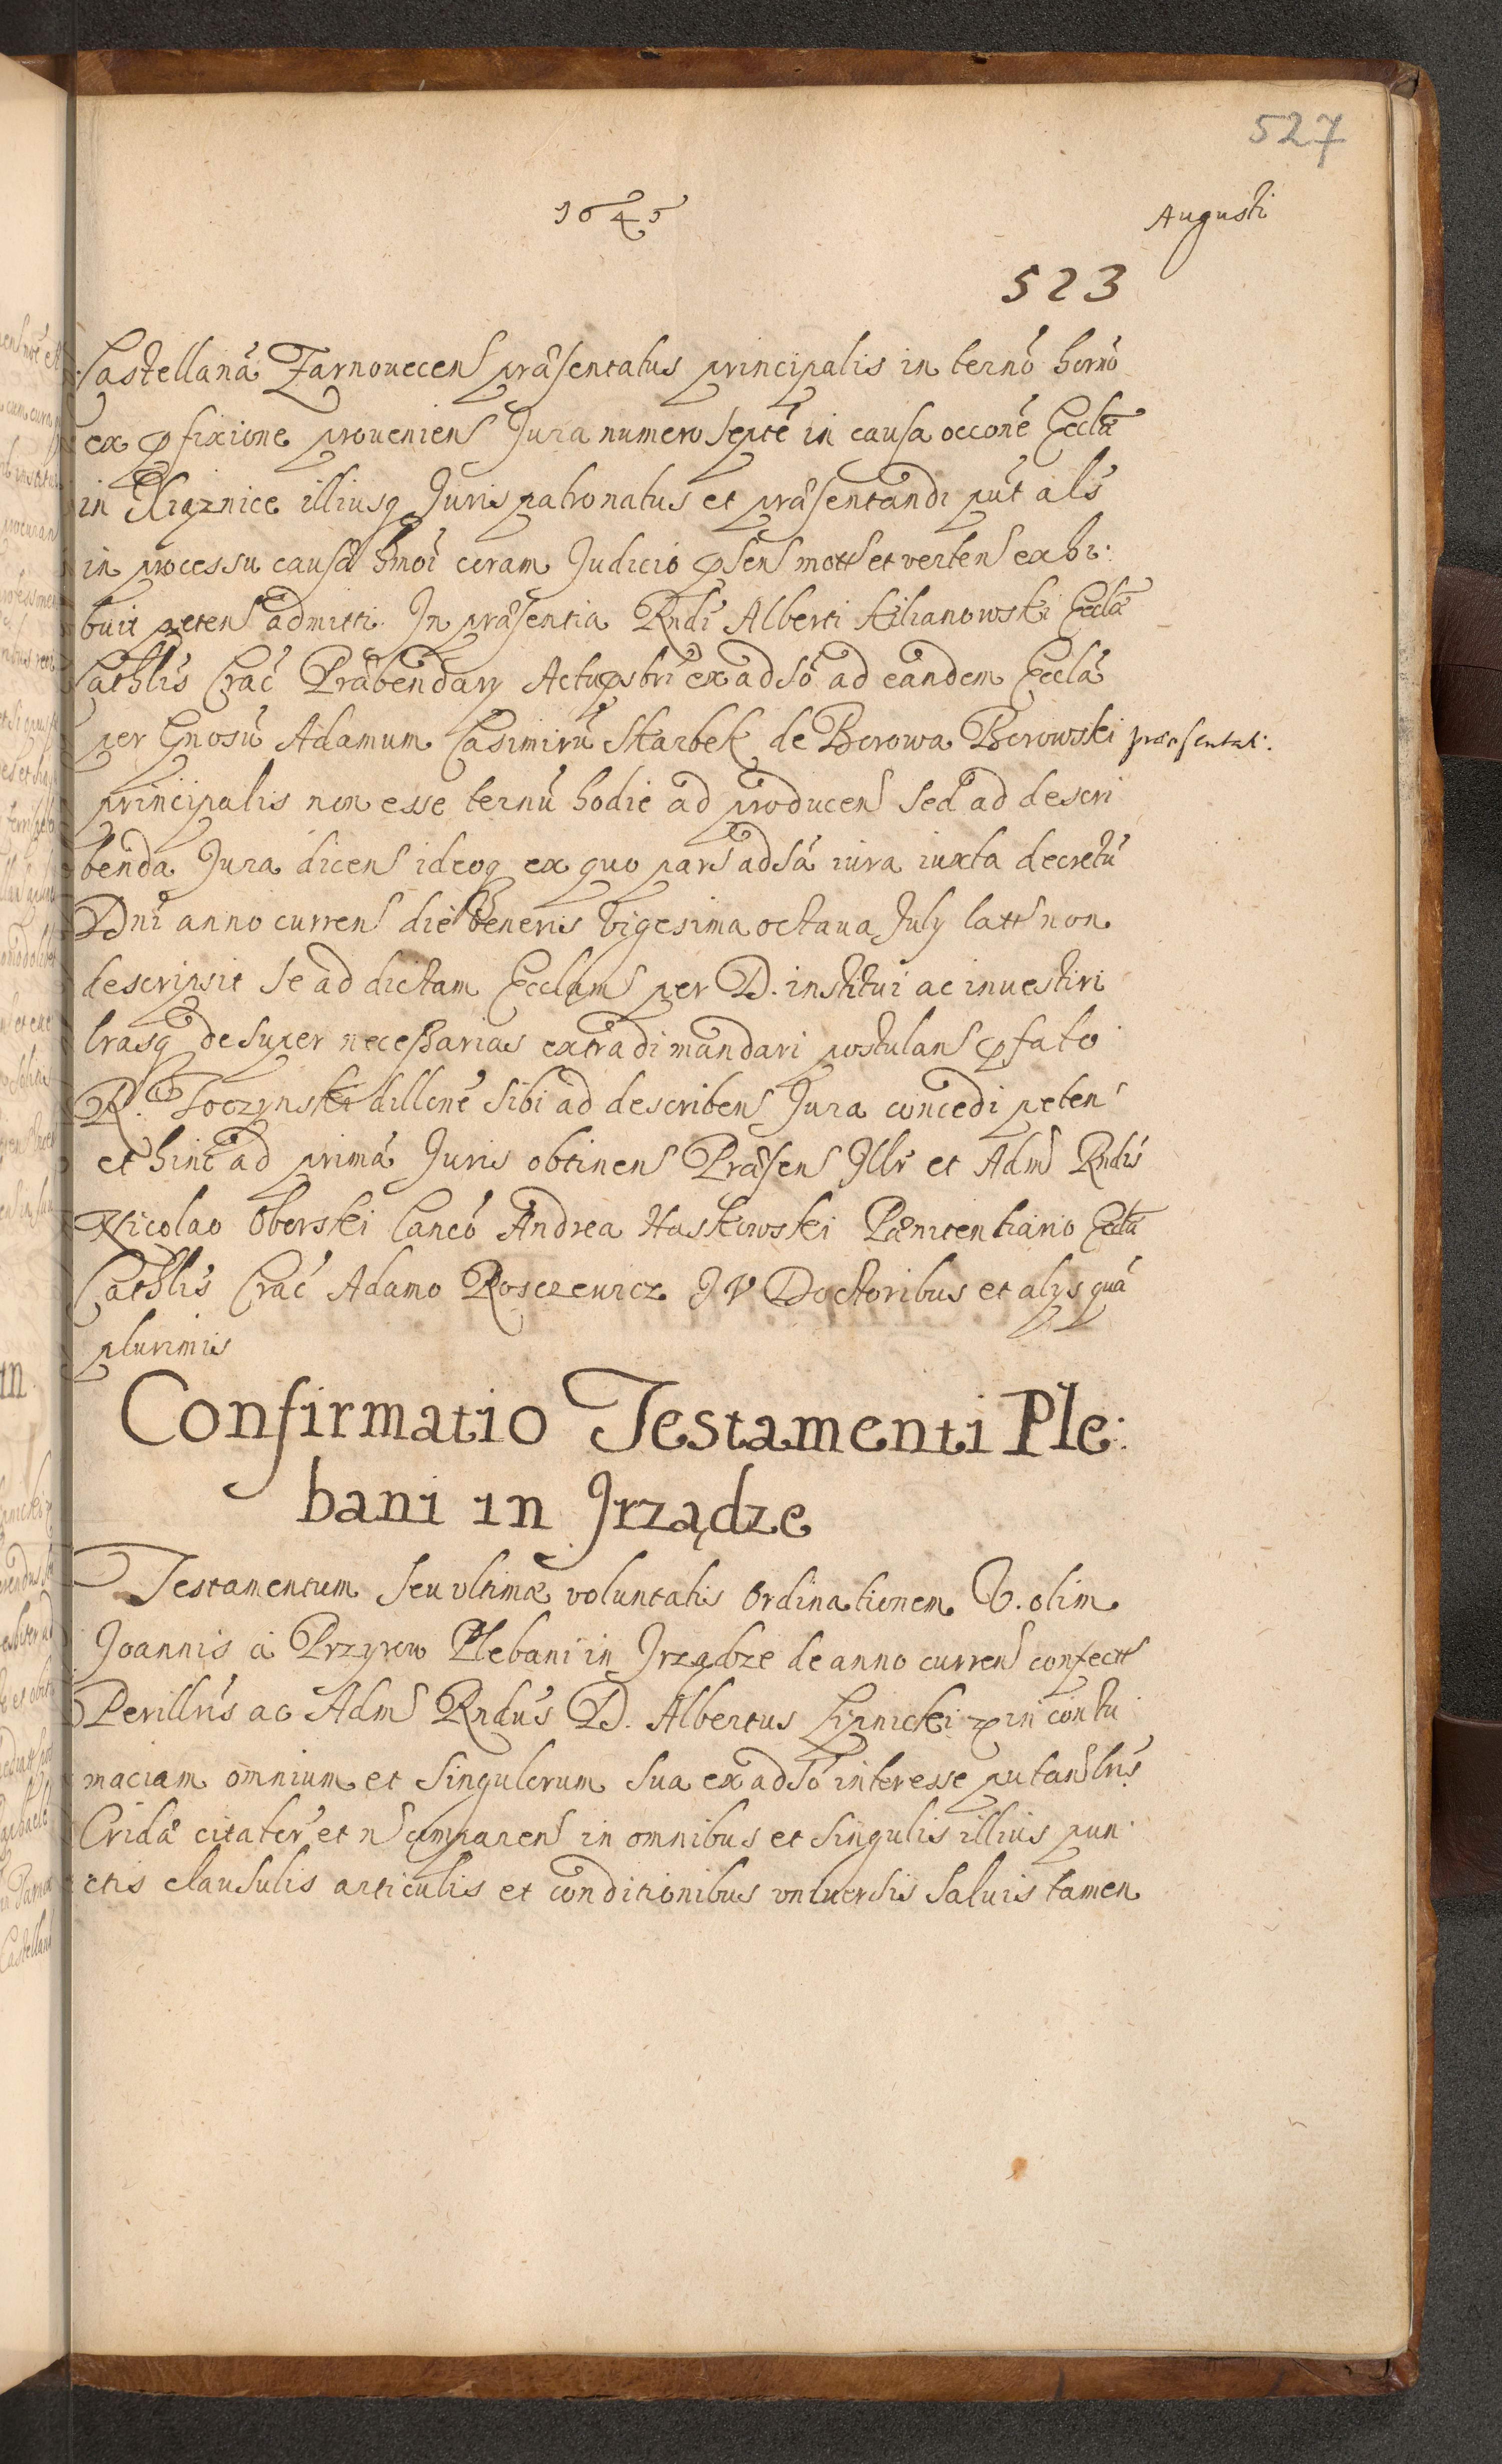 527
1645 Augusti
523
Castellaná Zarnouecens præsentatus principalis in ternó horno
ex pfixione proueniens Jura numero septé in causa occoné Ecclæ
in Xiąznice illiusq Juris patronatus et præsentandi put als
in processu causæ hmoi coram Judicio psens mott et vertens exhi:
buit petens admitti. In præsentia Rndi Alberti Kilianowski Ecclæ
Cathlis Crac Præbendary Actu pstri ex adso ad eandem Ecclá
per Gnosú Adamum Casimirú Skarbek de Borowa Borowski præsentat:
principalis non esse ternú hodie ad producens sed ad descri
benda Jura dicens ideoq ex quo pars adsá iura iuxta decretú
Dni anno currens die Veneris Vigesima octaua July latt non
descripsit se ad dictam Ecclam per D. institui ac inuestiri
lrasq desuper necessarias extradi mandari postulans pfato
R. Toczynski dillcné sibi ad describens Jura concedi peten
et hinc ad primá Juris obtinens Præsens Illr et Adm Rndis
Nicolao Oborski Canco Andrea Huskowski Pœnitentiario Ecclæ
Cathlis Crac Adamo Rosczewicz J V Doctoribus et alys quá
plurimis
Confirmatio Testamenti Ple:
bani in Jrządze
Testamentum seu vltimæ voluntatis ordinationem V. olim
Joannis a Przyrow Plebani in Jrządze de anno currens confectt
Perillris ac Adm Rndus D. Albertus Lipnicki in contu
maciam omnium et singulorum sua ex adso interesse putans lris
Cridæ citator et n comparens in omnibus et singulis illius pun
ctis clausulis articulis et conditionibus vniuersis saluis tamen